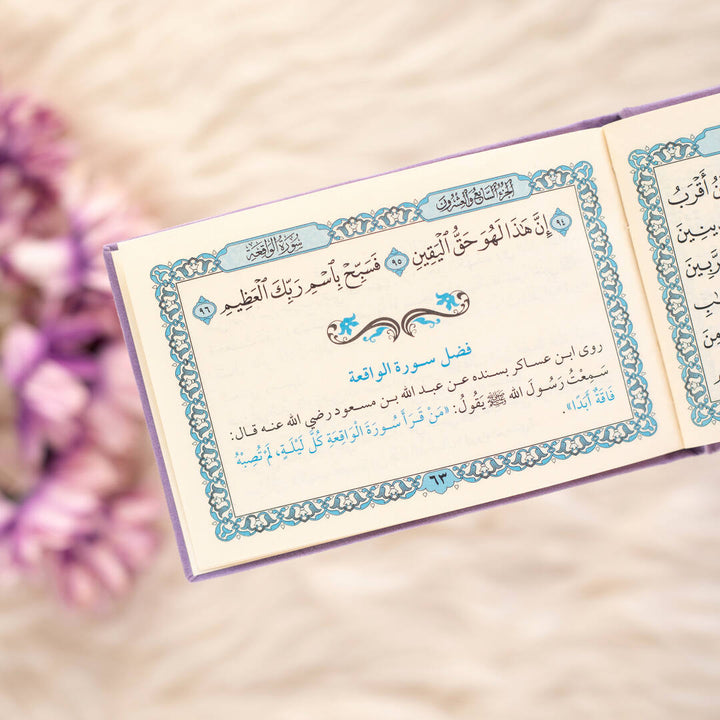 الجزء السابع والعشرون
سورة الواقعة
٩٤ إِنَّ هَٰذَا لَهُوَ حَقُّ الْيَقِينِ ٩٥ فَسَبِّحْ بِاسْمِ رَبِّكَ الْعَظِيمِ ٩٦
فضل سورة الواقعة
روى ابن عساكر بسنده عن عبد الله بن مسعود رضي الله عنه قال:
سَمِعْتُ رَسُولَ الله ﷺ يَقُولُ: «مَنْ قَرَأَ سُورَةَ الْوَاقِعَةِ كُلَّ لَيْلَةٍ، لَمْ تُصِبْهُ
فَاقَةٌ أَبَدًا».
٦٣
أَقْرَبُ